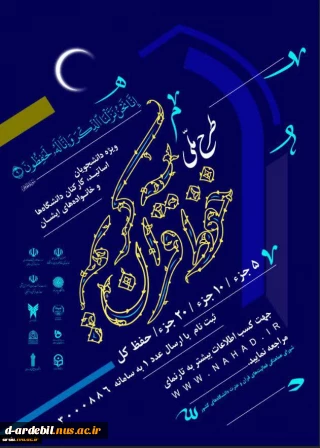 إِنَّا نَحْنُ نَزَّلْنَا الذِّكْرَ وَإِنَّا لَهُ لَحَافِظُونَ
طرح ملّی
حفظ قرآن کریم
ویژه دانشجویان
اساتید، کارکنان دانشگاه‌ها
و خانواده‌های ایشان
۵ جزء / ۱۰ جزء / ۲۰ جزء / حفظ کل
ثبت نام با ارسال عدد ۱ به سامانه ۳۰۰۰۸۸۶
جهت کسب اطلاعات بیشتر به تارنمای
WWW.NAHAD.IR
مراجعه نمایید
d-ardebil.nus.ac.ir